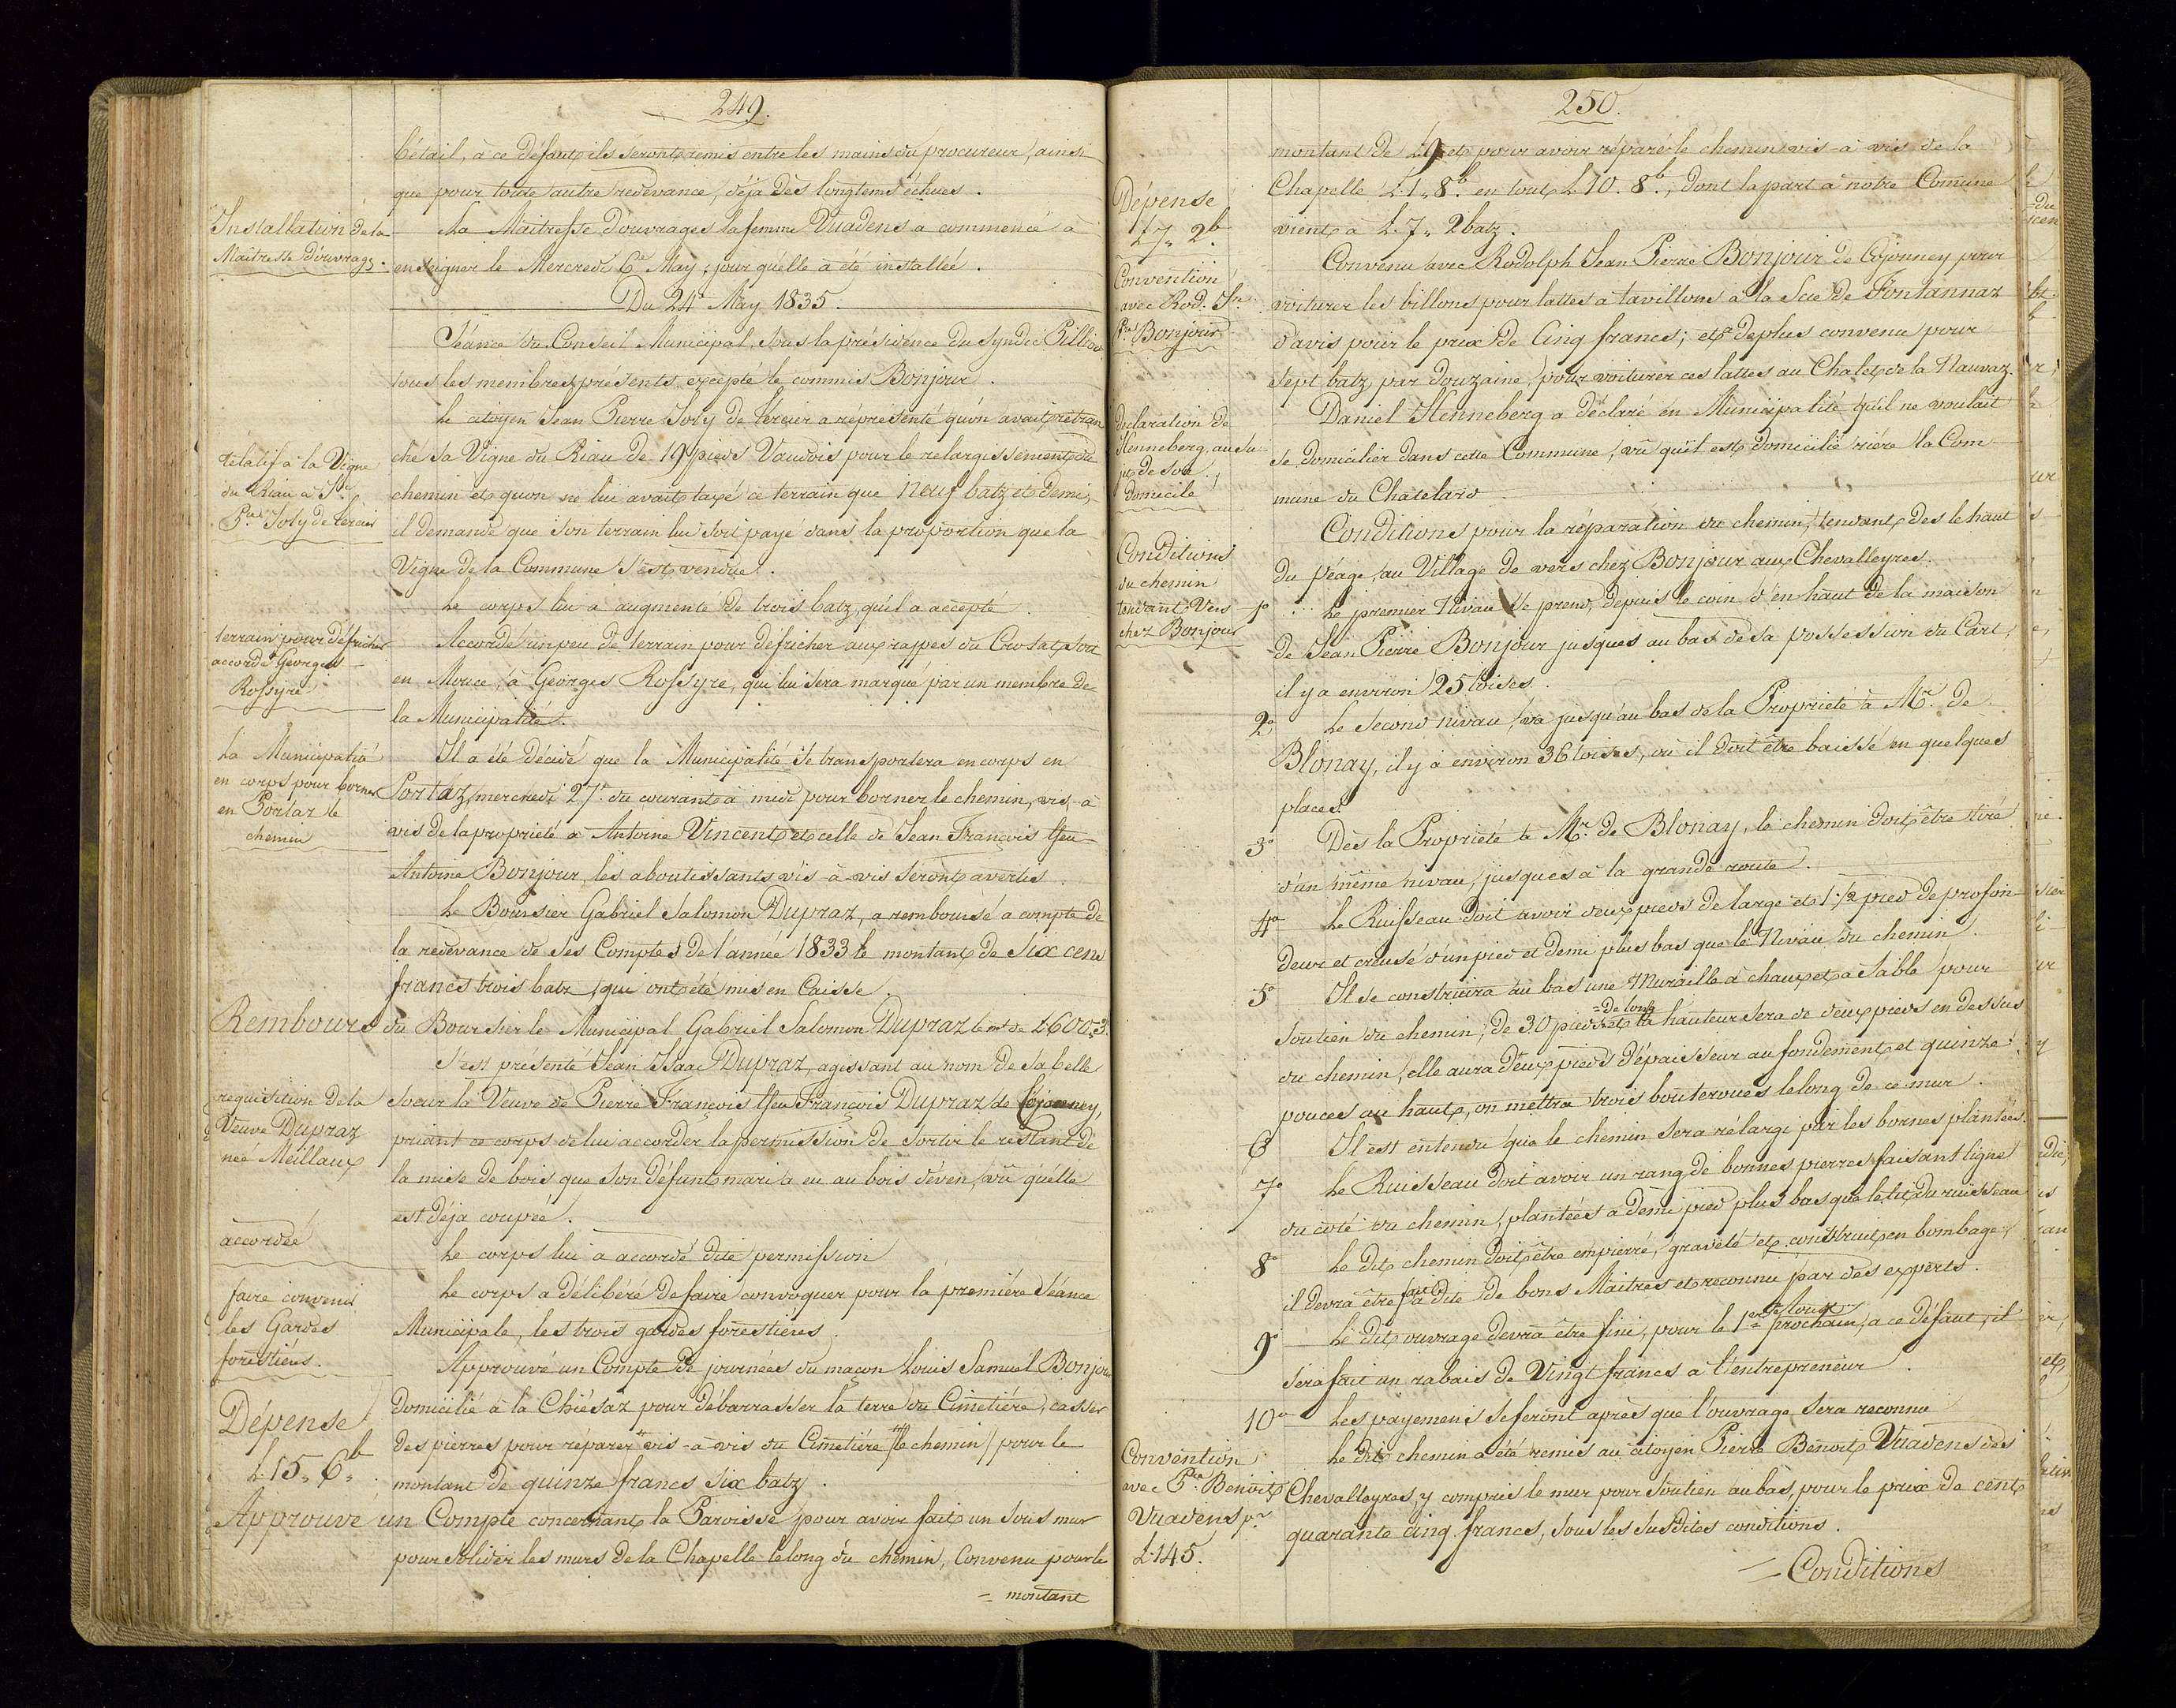 249.
bétail, à ce défaut ils seront remis entre les mains du procureur, ainsi
que pour toute autre redevance, déja dès longtems échues.
Installation de la
Maitresse d'ouvrags.
La Maitresse d'ouvrages la femme Vuadens a commencé à
enseigner le Mercredi 6e May, jour qu'elle à été installée.
Du 24e May 1835.
Séance du Conseil Municipal, sous la présidence du Syndic Pilliod
tous les membres présents, excepté le commis Bonjour.
relatif à la Vigne
du Riau à Jn
Pre Joly de tercier
Le citoyen Jean Pierre Joly de tercier a réprésenté qu'on avait retran
ché sa Vigne du Riau de 19 pieds Vaudois pour le relargissement du
chemin et qu'on ne lui avait taxé ce terrain que neuf batz et demi,
il demande que son terrain lui soit payé dans la proportion que la
Vigne de la Commune s'est vendue.
Le corps lui a augmenté de trois batz, qu'il a accepté.
terrain pour défricher
accordé Georges
Rossyre
Accordé un peu de terrain pour défricher aux rappes du Crosat soit
en Mouce, à Georges Rossyre, qui lui sera marqué par un membre de
la Municipalité.
La Municipalité
en corps pour borner
en Portaz le
chemin
Il a été décidé que la Municipalité se transportera en corps en
Portaz, mercredi 27e du courant à midi pour borner le chemin, vis-à
vis de la propriété à Antoine Vincent et celle de Jean François ffeu
Antoine Bonjour, les aboutissants vis-à-vis seront avertis.
Le Boursier Gabriel Salomon Dupraz, a remboursé a compte de
la redevance de ses Comptes de l'année 1833 le montant de Six cens
francs trois batz, qui ont été mis en Caisse.
Rembours du Boursier le Municipal Gabriel Salomon Dupraz le mt de L 600"3.
requisition de la
Veuve Dupraz
née Meillaux
S'est présenté Jean Isaac Dupraz, agissant au nom de sa belle
soeur la Veuve de Pierre François ffeu François Dupraz de Cojonney,
priant ce corps de lui accorder la permission de sortir le restant de
la mise de bois que son défunt mari a eu au bois d'éven, vû qu'elle
est déja coupée.
accordée
Le corps lui a accordé dite permission
faire convenir
les Gardes
forestiers.
Le corps a délibéré de faire convoquer pour la première Séance
Municipale, les trois gardes forestières.
Dépense
L. 15" 6b
Approuvé un Compte de journées du maçon Louis Samuel Bonjour
domicilié à la Chiésaz pour débarrasser la terre du Cimetière, casser
des pierres pour réparer vis-à-vis du Cimetière (le chemin) pour le
montant de quinze francs six batz.
Approuvé un Compte concernant la Paroisse pour avoir fait un sous mur
pour solider les murs de la Chapelle le long du chemin, Convenu pour le
= montant
250.
montant de L 9 et pour avoir réparé le chemin vis-à-vis de la
Chapelle L. 1" 8b. en tout L 10. 8b., dont la part à notre Comune
Dépense
L 7" 2b
vient à L. 7" 2 batz.
Convention
avec Rod. Jn
Pre Bonjour
Convenu avec Rodolph Jean Pierre Bonjour de Cojonney pour
voiturer les billons pour lattes à tavillons à la Scie de Fontannaz
d'avis pour le prix de Cinq francs; et deplus convenu pour
sept batz par douzaine, pour voiturer ces lattes au Chalet de la Nauvaz.
déclaration de
Henneberg, au su-
jet de son
domicile
Daniel Henneberg a déclaré en Municipalité qu'il ne voulait
se domicilier dans cette Commune, vû qu'il est domicilié rière la Com-
mune du Chatelard
Conditions
du chemin
tendant Vers
chez Bonjour
Conditions pour la réparation du chemin, tendant dès le haut
du Péage, au Village de vers chez Bonjour aux Chevalleyres.
1o Le premier Nivau se prend, depuis le coin d'en haut de la maison
de Jean Pierre Bonjour jusques au bas de sa possession du Cart,
il y a environ 25 toises.
2o Le second nivau, va jusqu'au bas de la Propriété à Mr. de
Blonay, il y a environ 36 toises, où il doit être baissé en quelques
places.
3o Dès la Propriété à Mr. de Blonay, le chemin doit être tiré
d'un même nivau, jusques à la grande route.
4o Le Ruisseau doit avoir deux pieds de large et 1 1/2 pied de profon-
deur et creusé d'un pied et demi plus bas que le Nivau du chemin.
5o Il se construira au bas une Muraille à chaux et à sable pour
soutien du chemin, de 30 pieds =de long et la hauteur sera de deux pieds en dessus
du chemin, elle aura deux pieds d'épaisseur au fondement, et quinze
pouces au haut, on mettra trois bouteroues le long de ce mur.
6 Il est entendu que le chemin sera rélargi par les bornes plantées.
7o Le Ruisseau doit avoir un rang de bonnes pierres, faisant ligne
du coté du chemin, plantées à demi pied plus bas que le lit du ruisseau
8o Le dit chemin doit être empierré, gravelé et construit en bombage,
il devra être fait à dite de bons Maitres et reconnu par des experts.
9o Le dit ouvrage devra être fini, pour le 1er prochain, a ce défaut, il
sera fait un rabais de Vingt francs à l'entrepreneur.
10o Les payemens se feront après que l'ouvrage sera reconnu
Convention
avec Pre Benoit
Vuadens pr
L. 145.
Le dit chemin a été remis au citoyen Pierre Benoit Vuadens des
Chevalleyres, y compris le mur pour soutien au bas, pour le prix de cent
quarante cinq francs, sous les susdites conditions.
= Conditions